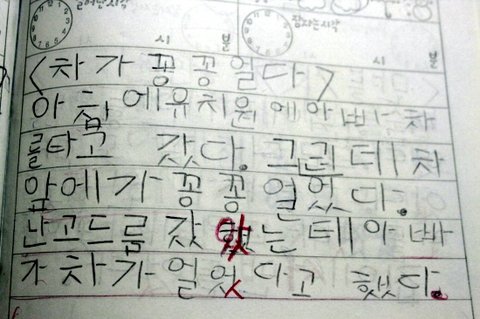 일어난시각 잠자는시각
시 분 시 분
<차가 꽁꽁얼다>
아침에유치원에아빠차
를타고 갔다. 그런데 차
앞에가 꽁꽁 얼었다.
난고드름 갔 는데 아빠
가 차가 얼었다고 했다.